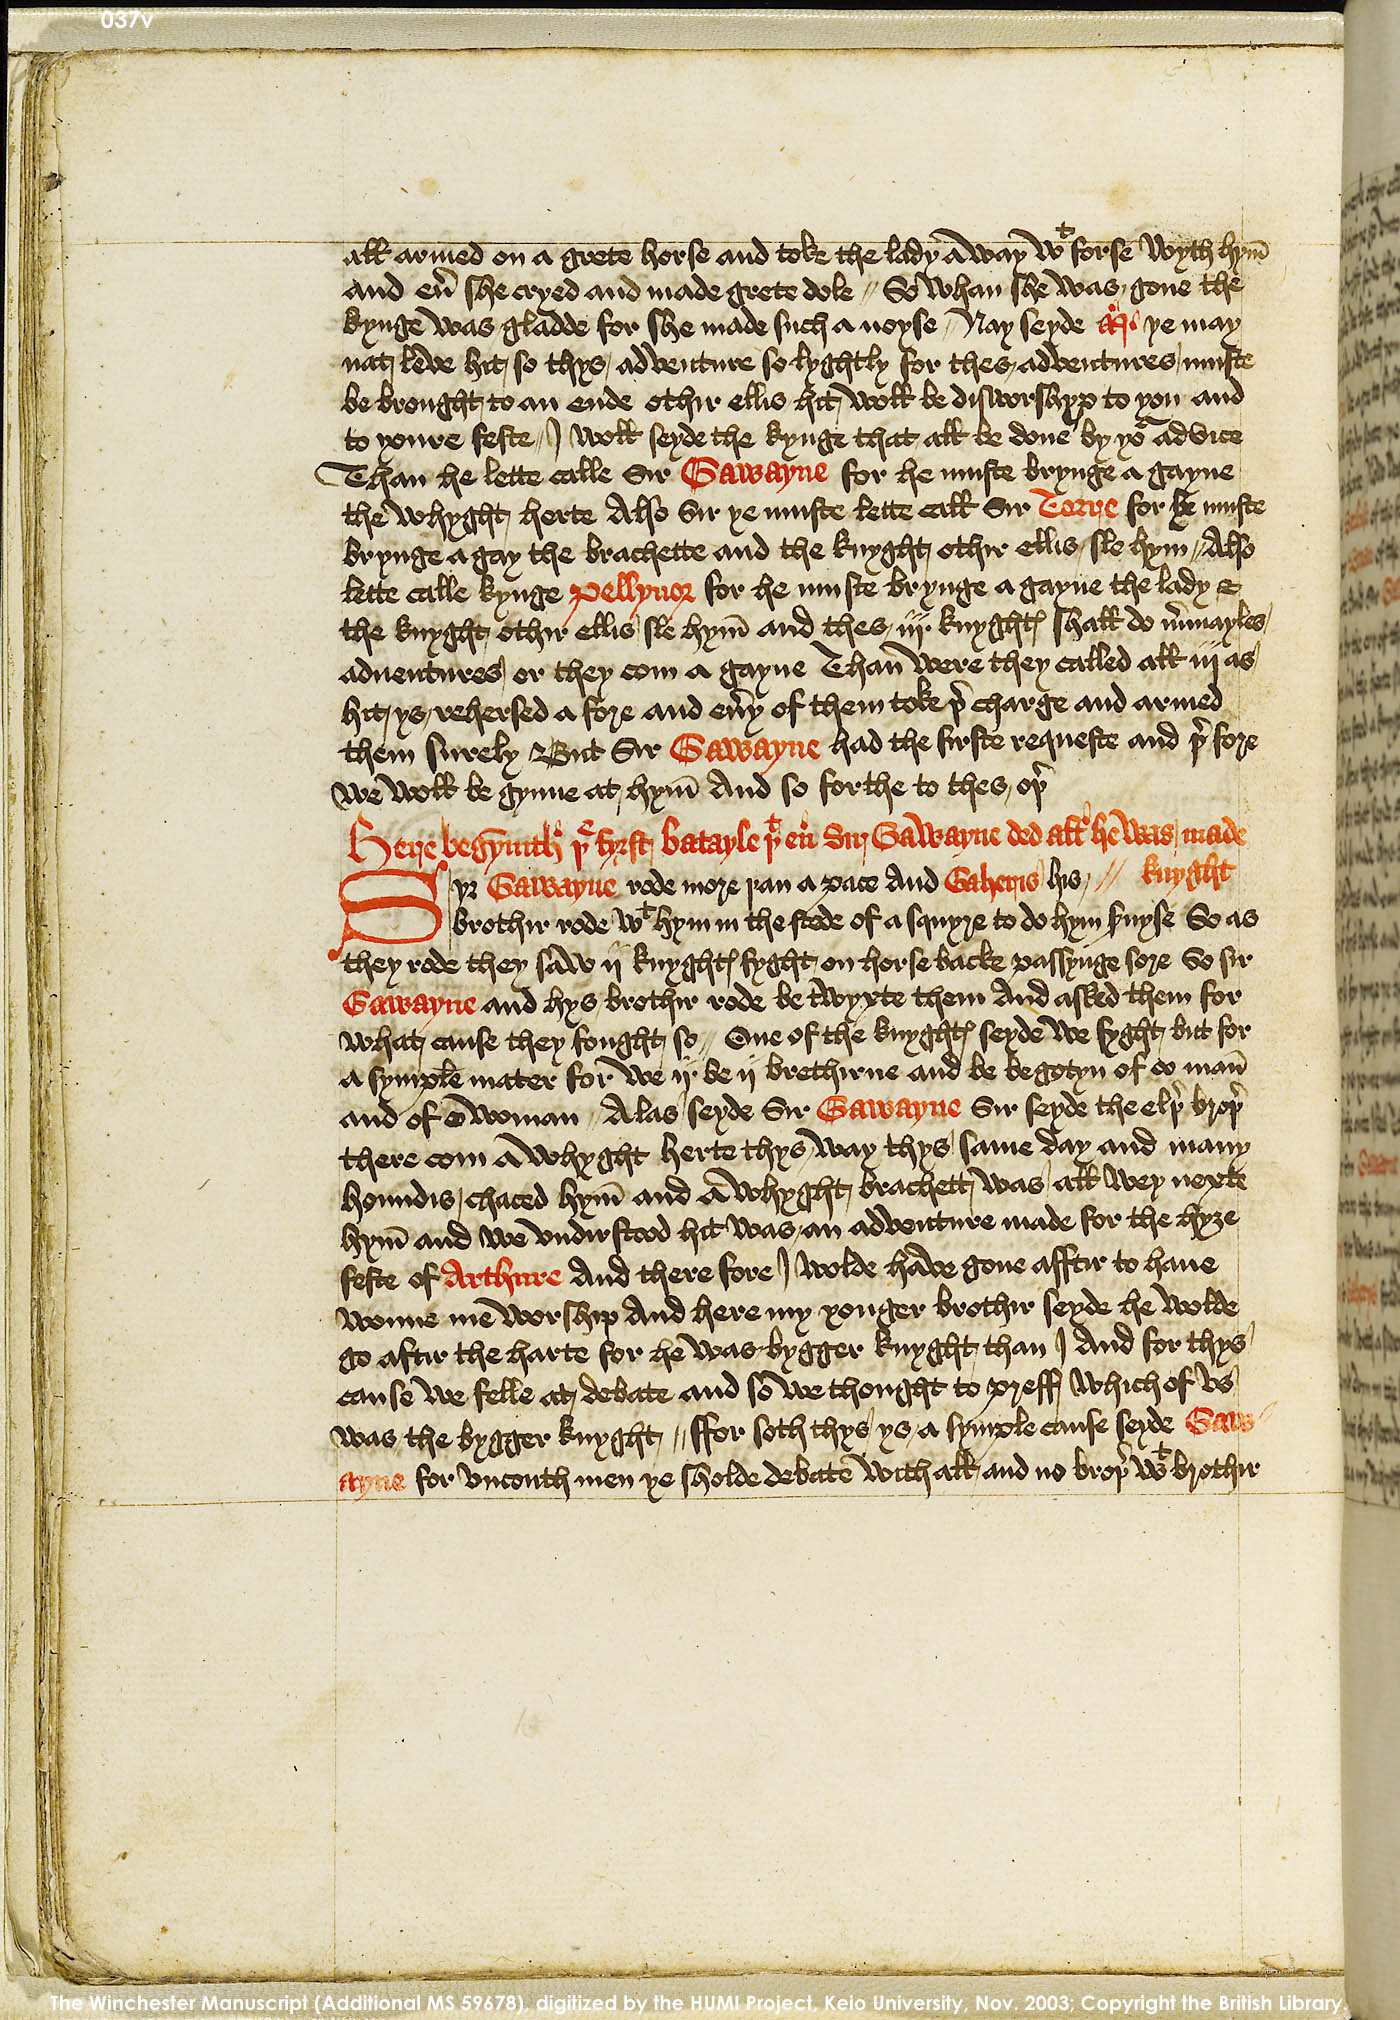 037v
all armed on a grete horse and toke the lady away wt forse wyth hym̄
and eu̾ she cryed and made grete dole // So whan she was gone the
kynge was gladde for she made such a noyse / Nay seyde ye may
nat leve hit so thys adventure so lyghtly for thes adventures muste
be brought to an ende othir ellis hit woll be disworshyp to you and
to youre feste // I woll seyde the kynge that all be done by yor advice
Than he lette calle Sir Gawayne for he muste brynge a gayne
the whyght herte Also Sir ye muste lette call Sir Torre for he muste
brynge a gay the brachette and the knyght othir ellis sle hym // Also
lette calle kynge Pellynor for he muste brynge a gayne the lady &
the knyght othir ellis sle hym̄ and thes iij knyghtꝭ shall do m̾uayles
aduentures or they com a gayne Than were they called all iij as
hit ys rehersed a fore and eu̾y of them toke þe charge and armed
them surely But Sir Gawayne had the firste requeste and þ̾ fore
we woll be gynne at hym̄ And so forthe to thes oþ̾
Here begynnith þe fyrst batayle þt eu̾ Sir Gawayne ded aft̾ he was made
Syr Gawayne rode more þan a pace And Gaheris his // knyght
brothir rode wt hym in the stede of a squyre to do hym s̾uyse So as
they rode they saw ij knyghtꝭ fyght on horse backe passynge sore So sir
Gawayne and hys brothir rode be twyxte them And asked them for
what cause they fought so // One of the knyghtꝭ seyde we fyght but for
a symple mater for we ij be ij brethirne and be begotyn of oo man̄
and of o woman // Alas seyde Sir Gawayne Sir seyde the elþ̾ broþ̾
there com a whyght herte thys way thys same day and many
houndis chaced hym̄ and a whyght brachett was all wey nexte
hym̄ and we undirstood hit was an adventure made for the hyze
feste of Arthure And therefore I wolde have gone afftir to haue
wonne me worship And here my yonger brothir seyde he wolde
go aftir the harte for he was bygger knyght than I And for thys
cause we felle at debate and so we thought to preff which of vs
was the bygger knyght // ffor soth thys ys a symple cause seyde Gaw-
ayne for vncouth men ye sholde debate with all and no broþ̾ wt brothir
The Winchester Manuscript (Additional MS 59678), digitized by the HUMI Project, Keio University, Nov. 2003; Copyright the British Library.